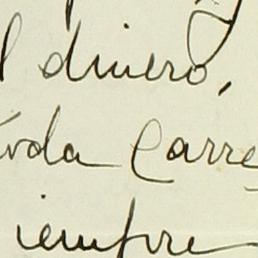 l dinero,
toda Carre
iempre